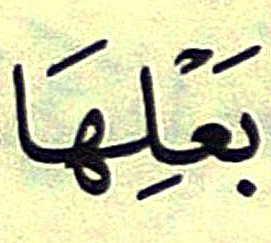 بَعْلِهَا